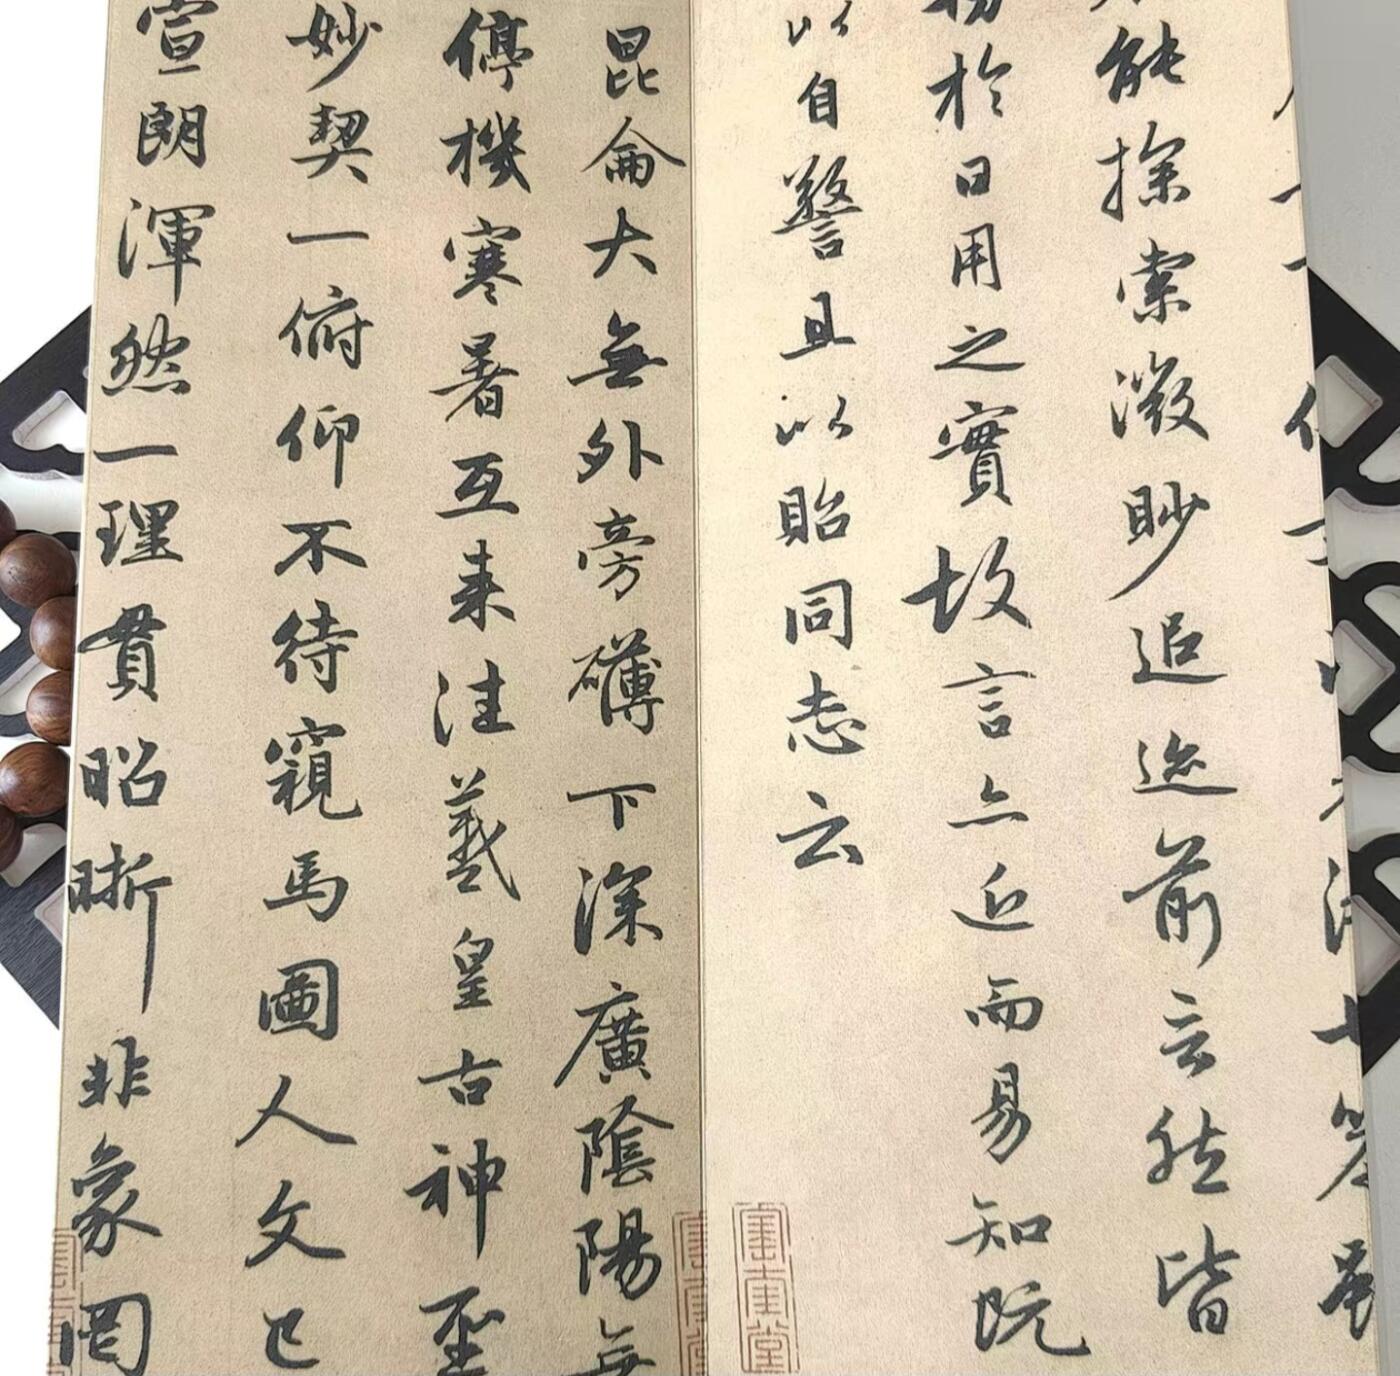 能探索微眇追迹前言然皆
於日用之實故言亦近而易知既
以自警且以貽同志云
昆侖大無外旁礴下深廣陰陽無
停機寒暑互来往羲皇古神聖
妙契一俯仰不待窺馬圖人文已
宣朗渾然一理貫昭晰非象罔